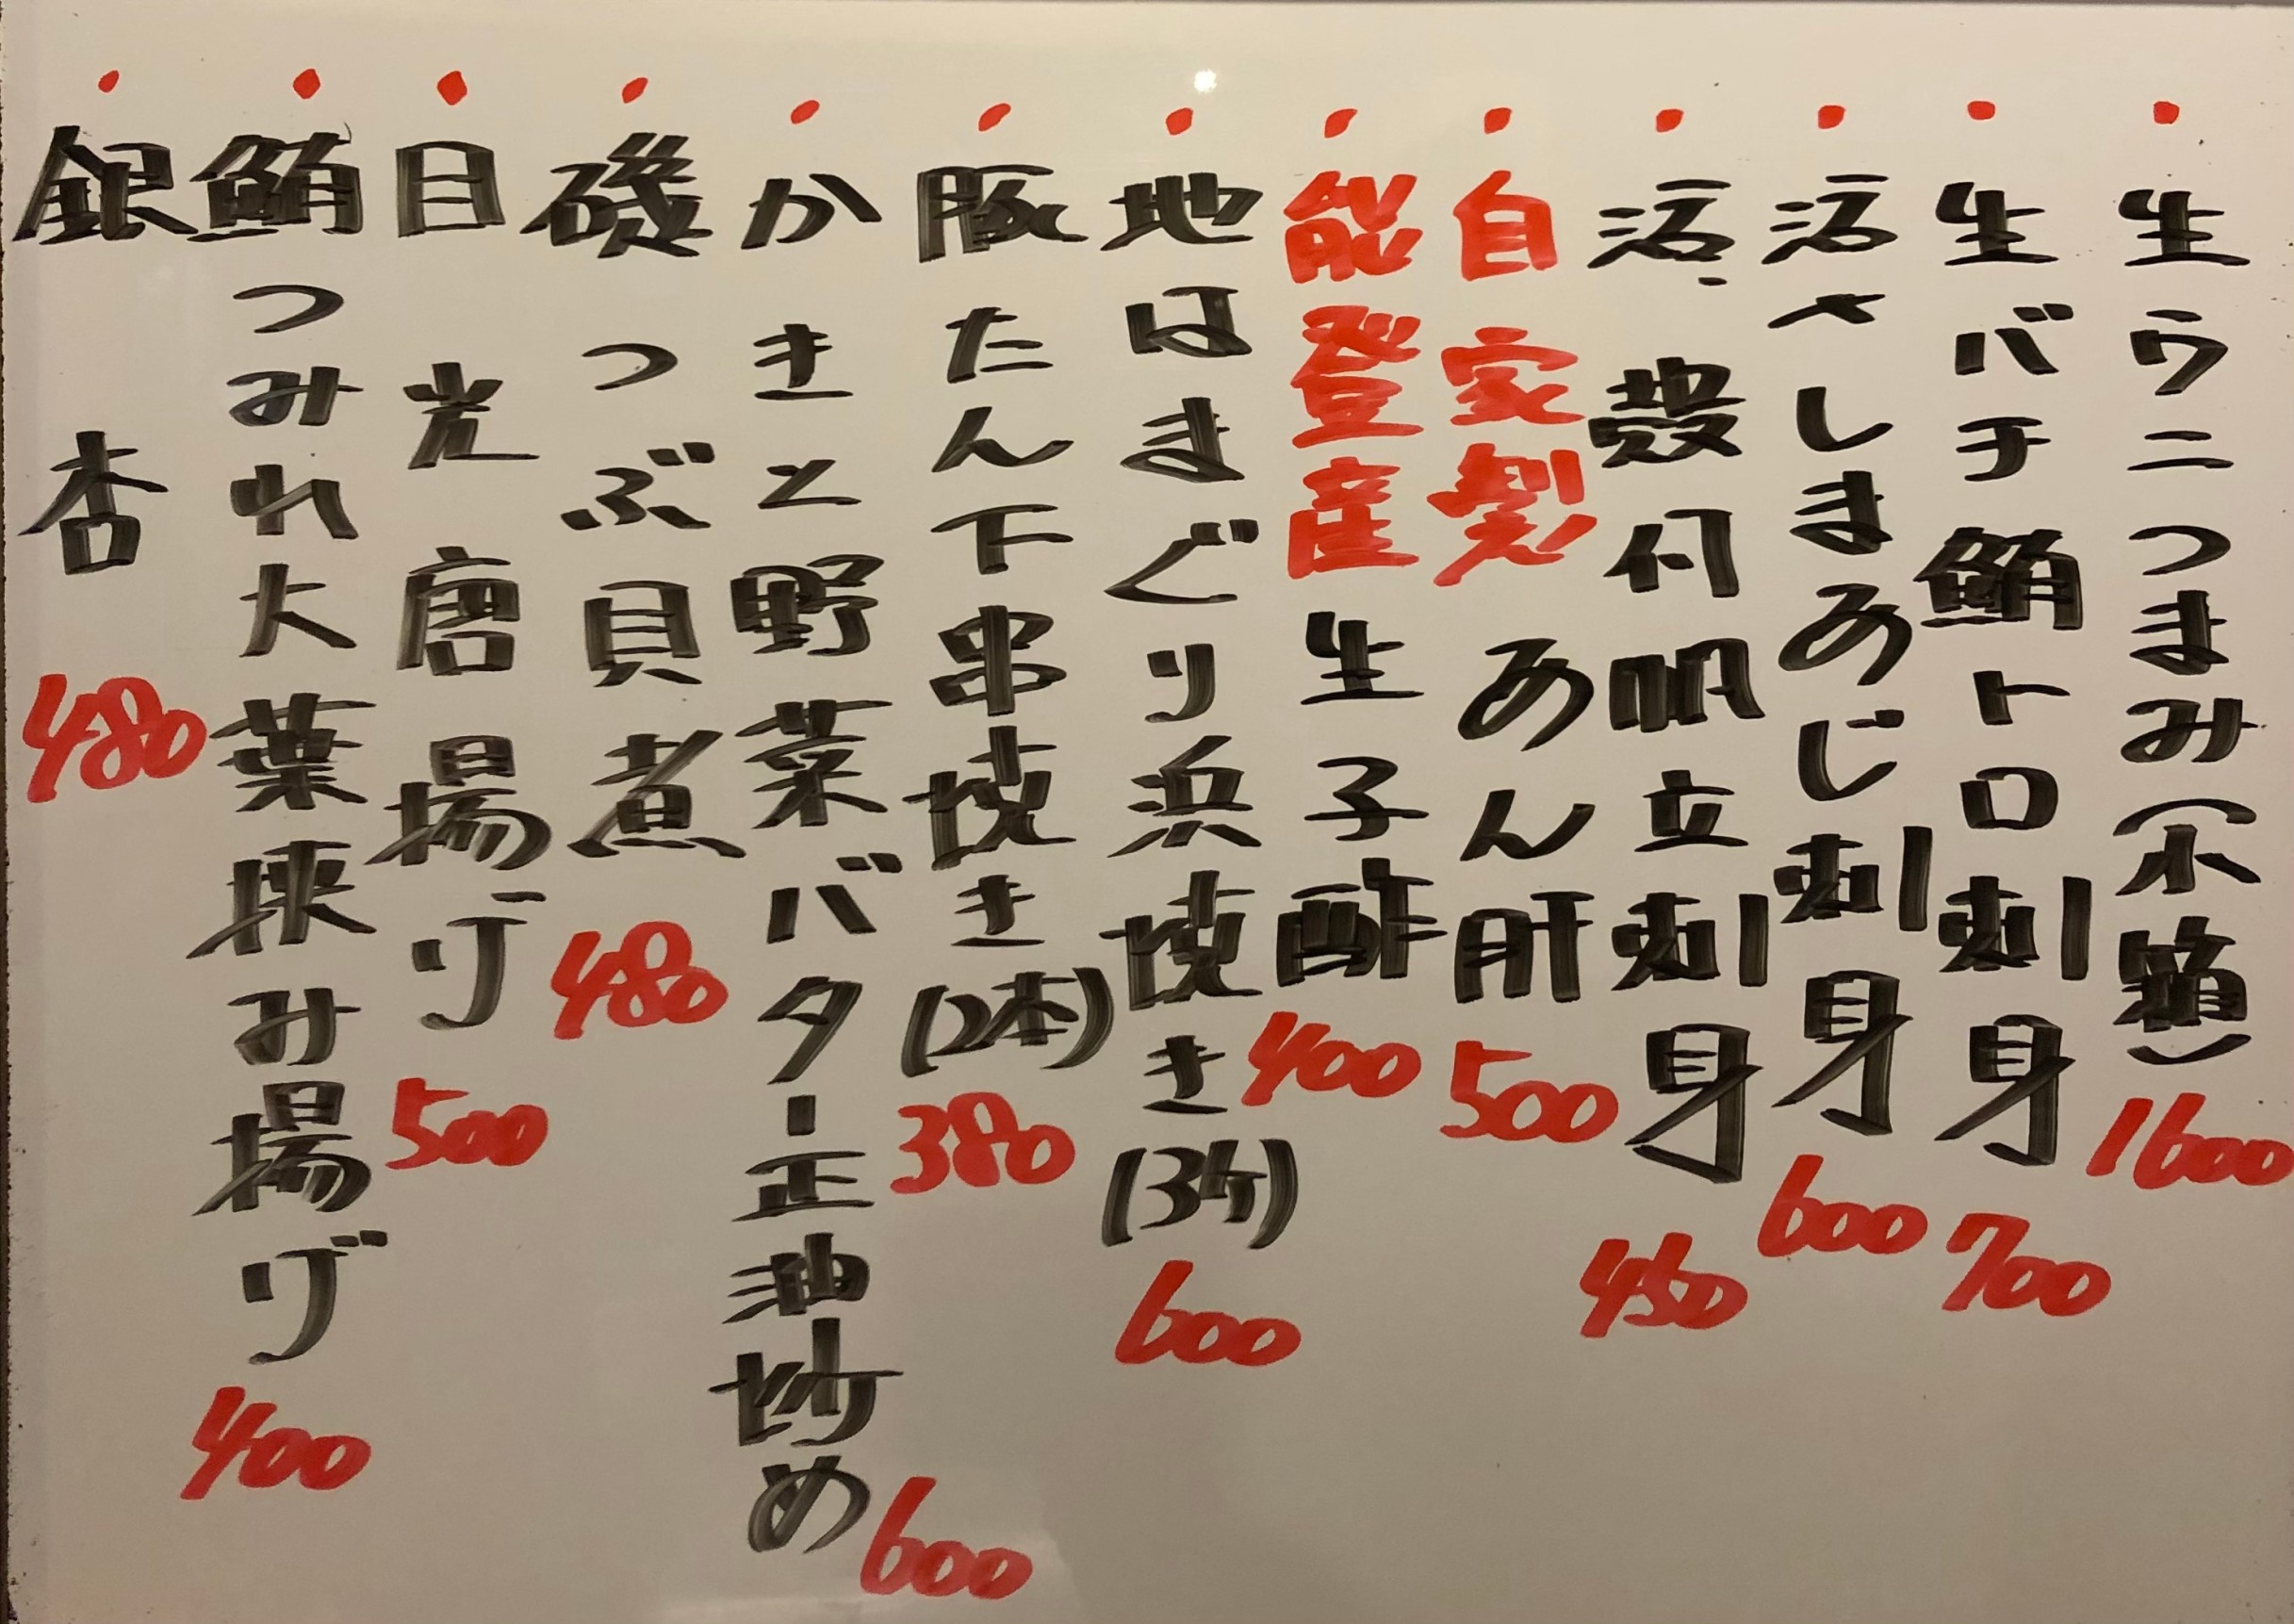 生ウニつまみ(木箱) 1600
生バチ鮪トロ刺身 700
活〆しまあじ刺身 600
活、殻付帆立刺身 450
自家製あん肝 500
能登産生子酢 400
地はまぐり浜焼き(3ケ) 600
豚たん下串焼き(2本) 380
かきと野菜バター正油炒め 600
磯つぶ貝煮 480
目光唐揚げ 500
鮪つみれ大葉挟み揚げ 400
銀杏 480